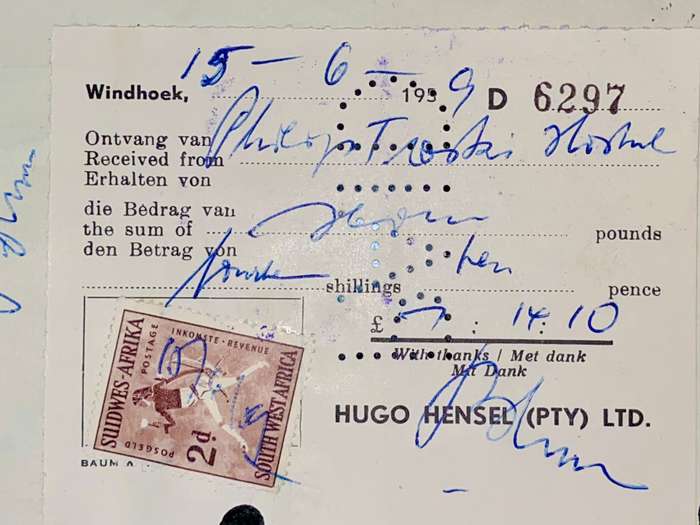 Windhoek, 15 - 6 - 1959 D 6297
Ontvang van
Received from
Erhalten von
die Bedrag van
the sum of pounds
den Betrag von
shillings ten pence
£ 7 : 14 : 10
With thanks / Met dank
Mit Dank
HUGO HENSEL (PTY) LTD.
SUIDWES-AFRIKA
POSTAGE
INKOMSTE · REVENUE
SOUTH WEST AFRICA
POSGELD
2d.